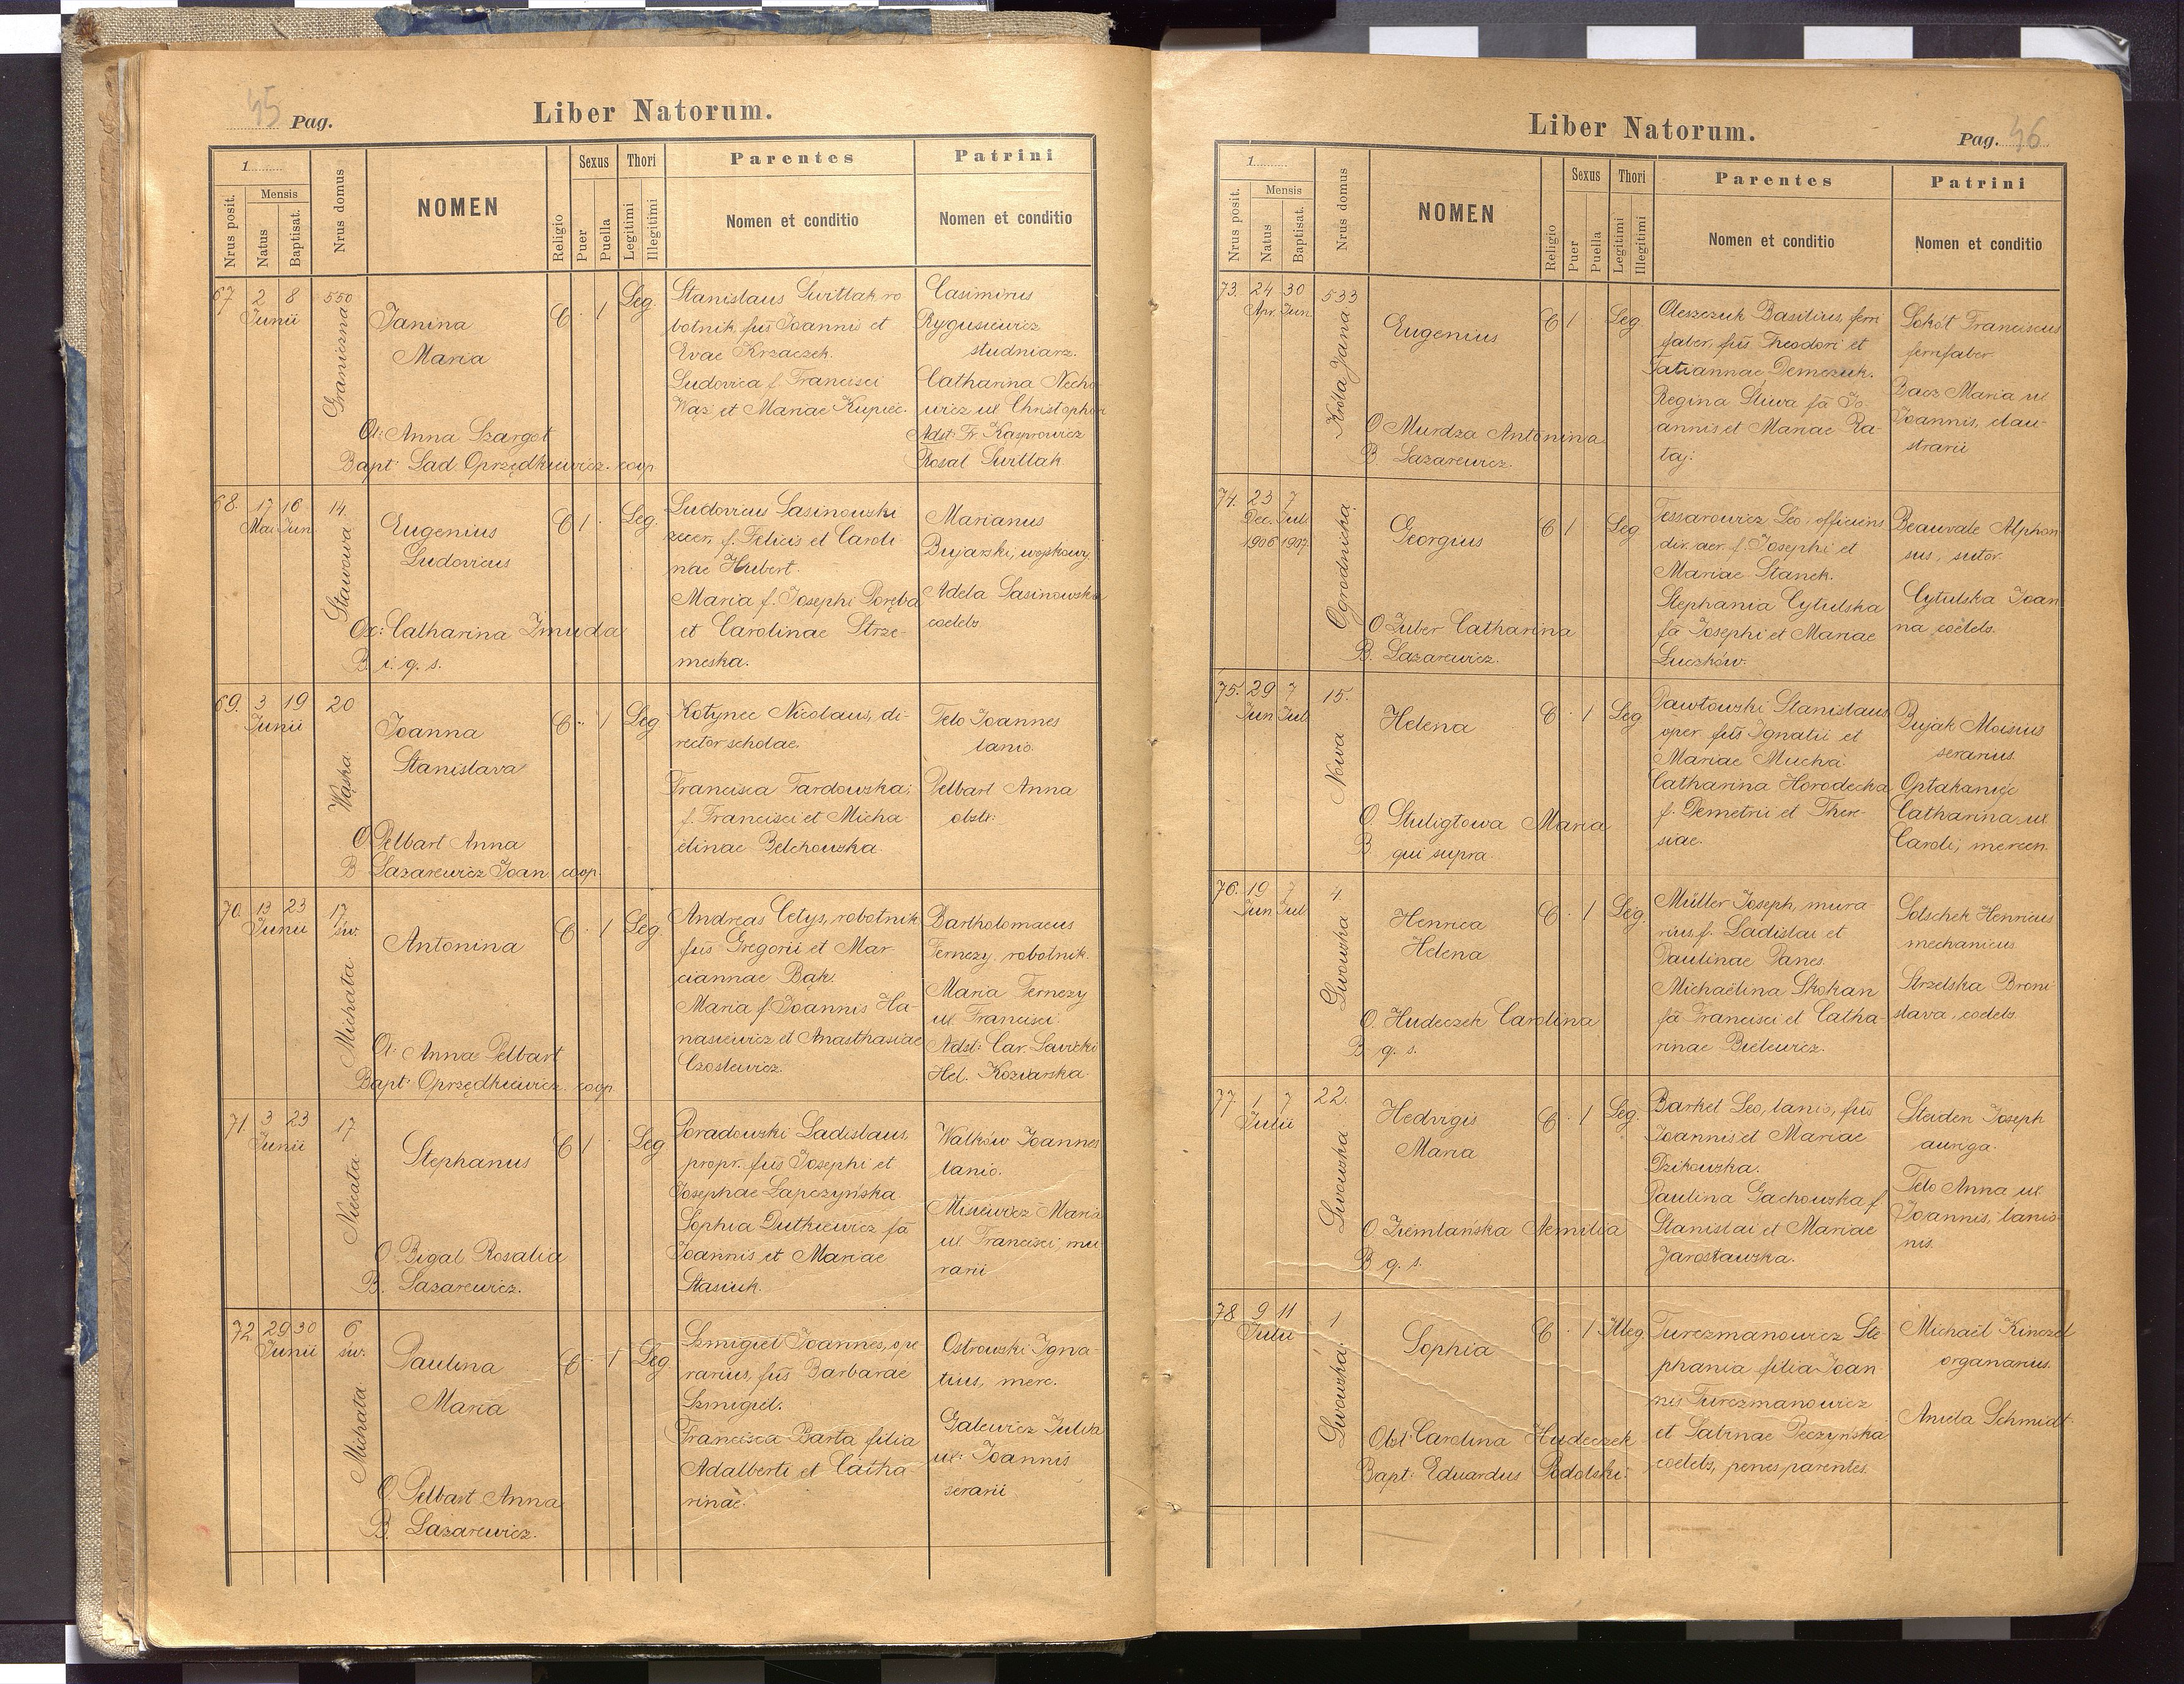 45 Pag.
Liber Natorum.
1
Nrus posit.
Mensis
Natus
Baptisat.
Nrus domus
NOMEN
Religio
Sexus
Puer
Puella
Thori
Legitimi
Illegitimi
Parentes
Nomen et conditio
Patrini
Nomen et conditio
67 2 8
Junii
550
Graniczna
Janina
Maria
Ot: Anna Szargot
Bapt: Lad. Oprzędkiewicz. coop
C · 1 Leg.
Stanislaus Świtlak ro
botnik, fus Joannis et
Evae Krzaczek.
Ludovica f. Francisci
Wąż et Mariae Kupiec.
Casimirus
Rygusiewicz
studniarz.
Catharina Necho
wicz ux Christophori
Adst: Fr. Kasprowicz
Rosal Świtlak
68. 17 16
Mai Jun
14.
Stawowa
Eugenius
Ludovicus
Ox: Catharina Żmuda
B i. q. s.
C 1 · Leg.
Ludovicus Sasinowski
zecer, f. Felicis et Caroli
nae Hubert.
Maria f. Josephi Poręba
et Carolinae Strze-
meska.
Marianus
Bujarski, wojskowy
Adela Sasinowska
coelebs
69. 3 19
Junii
20
Wąska
Joanna
Stanislava
O Pelbart Anna
B Lazarewicz Joan coop.
C · 1 Leg
Kotynec Nicolaus, di-
rector scholae.
Francisca Tardowska,
f. Francisci et Micha-
elinae Belchowska.
Telo Joannes
lanio.
Pelbart Anna
obstr.
70. 13 23
Junii
17
św.
Michała
Antonina
O: Anna Pelbart
Bapt: Oprzędkiewicz. coop.
C · 1 Leg.
Andreas Cetys, robotnik
fus Gregorii et Mar-
ciannae Bąk.
Maria f Joannis Ha-
nasiewicz et Anasthasiae
Czostewicz.
Bartholomaeus
Ternezy. robotnik.
Maria Ternezy
ux Francisci.
Adst: Car. Sawicki
Hel. Kozarska.
71. 3 23
Junii
17
Niecała
Stephanus
O Bigal Rosalia
B. Lazarewicz.
C 1 · Leg
Poradowski Ladislaus,
propr. fus Josephi et
Josephae Łapczyńska
Sophia Dutkiewicz fa
Joannis et Mariae
Stasiuk.
Walków Joannes
lanio.
Misiewicz Maria
ux Francisci, mu
rarii
72 29 30
Junii
6
św.
Michała
Paulina
Maria
O. Pelbart Anna
B. Lazarewicz.
C · 1 Leg.
Szmigiel Joannes, ope
rarius, fus Barbarae
Szmigiel.
Francisca Barta filia
Adalberti et Catha-
rinae.
Ostrowski Igna-
tius, merc.
Galewicz Julia
ux: Joannis
serarii
Liber Natorum.
Pag. 46
1
Nrus posit.
Mensis
Natus
Baptisat.
Nrus domus
NOMEN
Religio
Sexus
Puer
Puella
Thori
Legitimi
Illegitimi
Parentes
Nomen et conditio
Patrini
Nomen et conditio
73. 24 30
Apr. Jun.
533
Króla Jana
Eugenius
O Murdza Antonina
B. Lazarewicz.
C 1 · Leg.
Oleszczuk Basilius, ferri
faber, fus Theodori et
Tatiannae Demczuk.
Regina Śliwa fa Jo
annis et Mariae Ra-
taj.
Sokół Franciscus
ferrifaber
Bacz Maria ux
Joannis, clau-
strarii
74. 23 7
Dec. Jul.
1906 1907
Ogrodnicka
Georgius
O Zuber Catharina
B. Lazarewicz.
C 1 · Leg
Tessarowicz Leo, officians
dir. aer. f. Josephi et
Mariae Stanek.
Stephania Cytulska
fa Josephi et Mariae
Łuczków.
Beauvale Alphon
sus, sutor.
Cytulska Joan
na, coelebs.
75. 29 7
Jun Jul
15.
Nowa
Helena
O Stuligłowa Maria
B. qui supra.
C · 1 Leg
Pawłowski Stanislaus
oper. fus Ignatii et
Mariae Mucha.
Catharina Horodecka
f. Demetrii et There-
siae.
Bujak Aloisius
serarius.
Catharina ux
Caroli, mercen.
76. 19 7
Jun Jul.
4.
Lwowska
Henrica
Helena
O. Hudeczek Carolina
B q. s.
C · 1 Leg.
Müller Joseph, mura
rius f. Ladislai et
Paulinae Panes.
Michaëlina Skokan
fa Francisci et Catha-
rinae Bielewicz.
Solschek Henricus
mechanicus
Strzelska Broni
slava, coelebs
77. 1 7
Julii
22.
Lwowska
Hedvigis
Maria
O. Ziemlańska Aemilia
B q. s.
C · 1 Leg.
Barket Leo, lanio, fus
Joannis et Mariae
Dzikowska.
Paulina Gachowska f
Stanislai et Mariae
Jarosławska.
Steiden Joseph
auriga.
Telo Anna ux
Joannis, lanio-
nis.
78 9 11
Julii
1
Lwowska
Sophia
Obst: Carolina Hudeczek
Bapt: Eduardus Podolski.
C · 1 Illeg.
Turczmanowicz Ste-
phania filia Joan-
nis Turczmanowicz
et Sabinae Peczyńska
coelebs, penes parentes.
Michaël Kinczel
organarius.
Aniela Schmidt